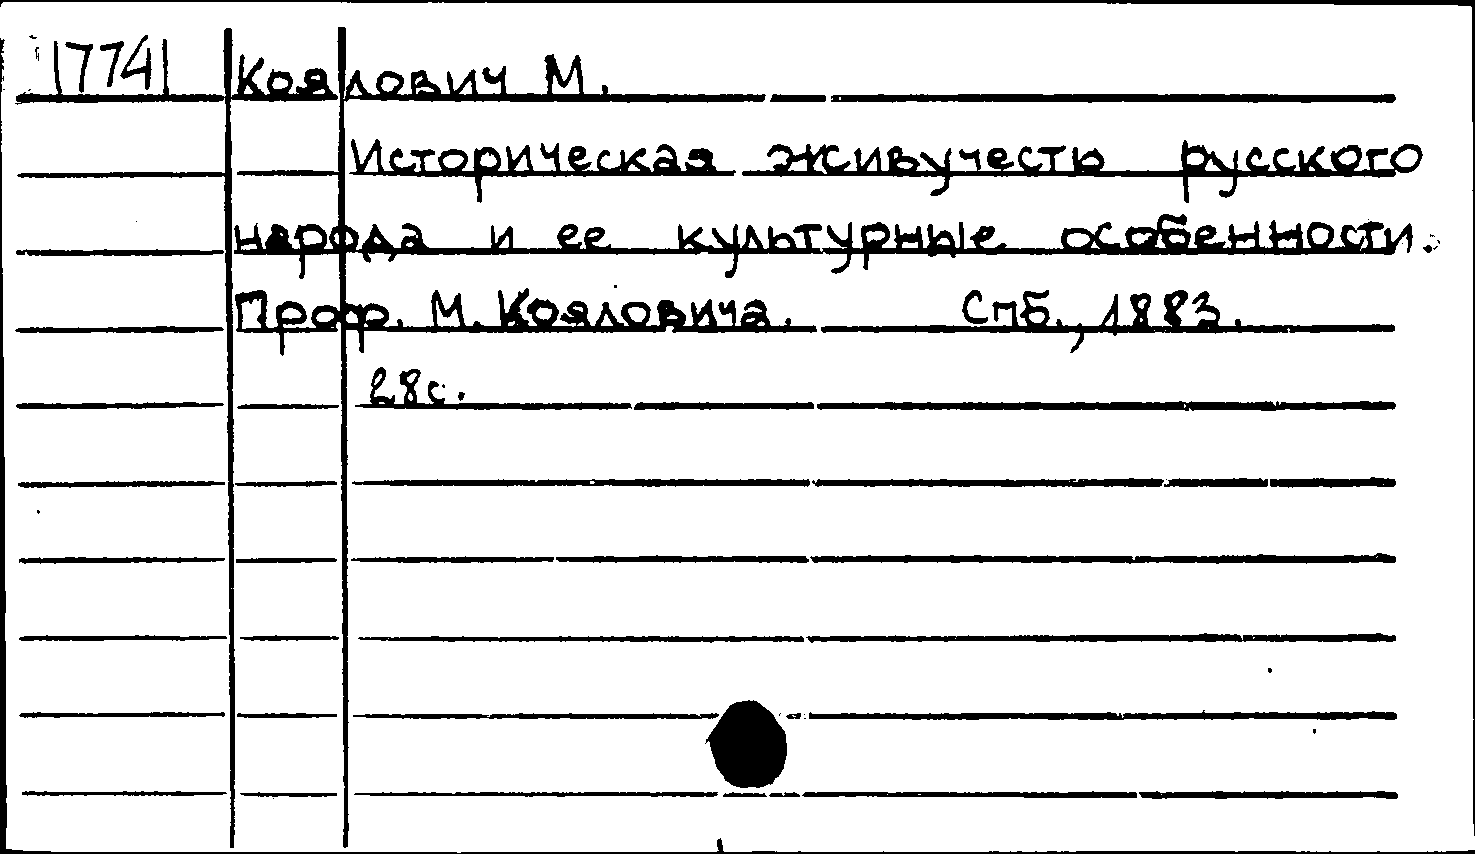 17741
Коялович М.
Историческая живучесть русского
народа и ее культурные особенности.
Проф. М. Кояловича. Спб., 1883.
28с.